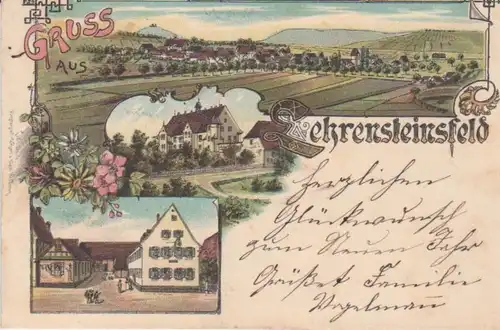 GRUSS
AUS
Lehrensteinsfeld
Herzlichen
Glückwunsch
zum Neuen Jahr
Grüßet Familie
Vogelmann